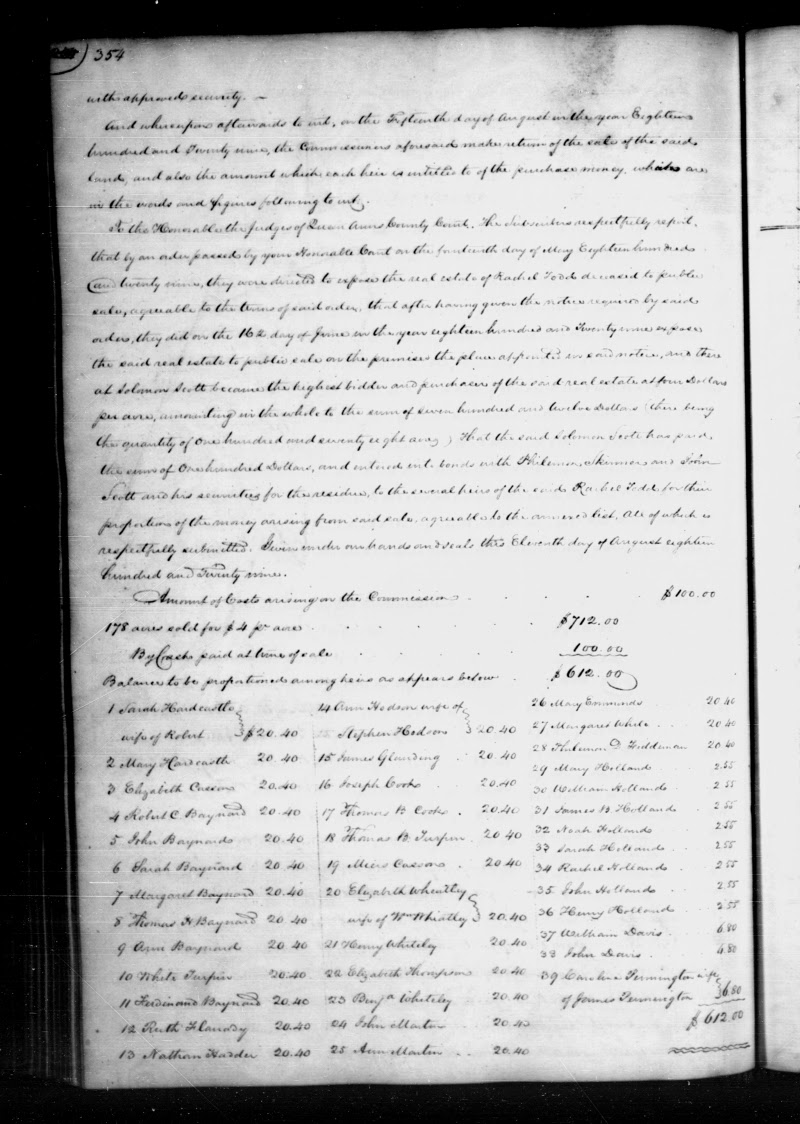 354
with approved security. —
And whereupon afterwards to wit, on the Fifteenth day of August in the year Eighteen
hundred and Twenty nine, the Commissioners aforesaid make return of the sale of the said
land, and also the amount which each heir is intitled to of the purchase money, which are
in the words and figures following to wit,
To the Honorable the Judges of Queen Anns County Court. The Subscribers respectfully report,
that by an order passed by your Honorable Court on the fourteenth day of May Eighteen hundred
and twenty nine, they were directed to expose the real estate of Rachel Todd deceased to public
sale, agreeable to the terms of said order, that after having given the notice required by said
order, they did on the 16th day of June in the year eighteen hundred and Twenty nine expose
the said real estate to public sale on the premises the place appointed in said notice, and there
at Solomon Scott became the highest bidder and purchaser of the said real estate at four Dollars
per acre, amounting in the whole to the sum of seven hundred and twelve Dollars (there being
the quantity of one hundred and seventy eight acres) That the said Solomon Scott has paid,
the sum of One hundred Dollars, and entered into bonds with Philemon Skinner and John
Scott and his securities for the residue, to the several heirs of the said Rachel Todd for their
proportions of the money arising from said sale, agreeable to the annexed list, All of which is
respectfully submitted. Given under our hands and seals this Eleventh day of August eighteen
hundred and Twenty nine.
Amount of Costs arising on the Commission . . . . $100.00
178 acres sold for $4 pr acre . . . $712.00
By Cash paid at time of sale 100.00
Balance to be proportioned among heirs as appears below $612.00
1 Sarah Hardcastle
wife of Robert $20.40
2 Mary Hardcastle 20.40
3 Elizabeth Cassons 20.40
4 Robert C Baynard 20.40
5 John Baynards 20.40
6 Sarah Baynard 20.40
7 Margaret Baynard 20.40
8 Thomas H Baynard 20.40
9 Ann Baynard 20.40
10 White Turpin 20.40
11 Ferdinand Baynard 20.40
12 Ruth 20.40
13 Nathan Harder 20.40
14 Ann Hodson wife of
Stephen Hodson 20.40
15 James Glanding 20.40
16 Joseph Cooks 20.40
17 Thomas B Cooks 20.40
18 Thomas B Turpin 20.40
19 Miers Cassons 20.40
20 Elizabeth Wheatley
wife of Wm Whiatley 20.40
21 Henry Whiteley 20.40
22 Elizabeth Thompson 20.40
23 Benja Whiteley 20.40
24 John Martin 20.40
25 Ann Martin 20.40
26 Mary Emmonds 20.40
27 Margaret While 20.40
28 Philemon D 20.40
29 Mary Holland 2.55
30 William Hollands 2.55
31 James B. Holland 2.55
32 Noah Hollands 2.55
33 Sarah Hollands 2.55
34 Rachel Hollands 2.55
35 John Hollands 2.55
36 Henry Holland 2.55
37 William Davis 6.80
33 John Davis 6.80
39 Caroline Pennington wife
of James Pennington 6.80
$612.00